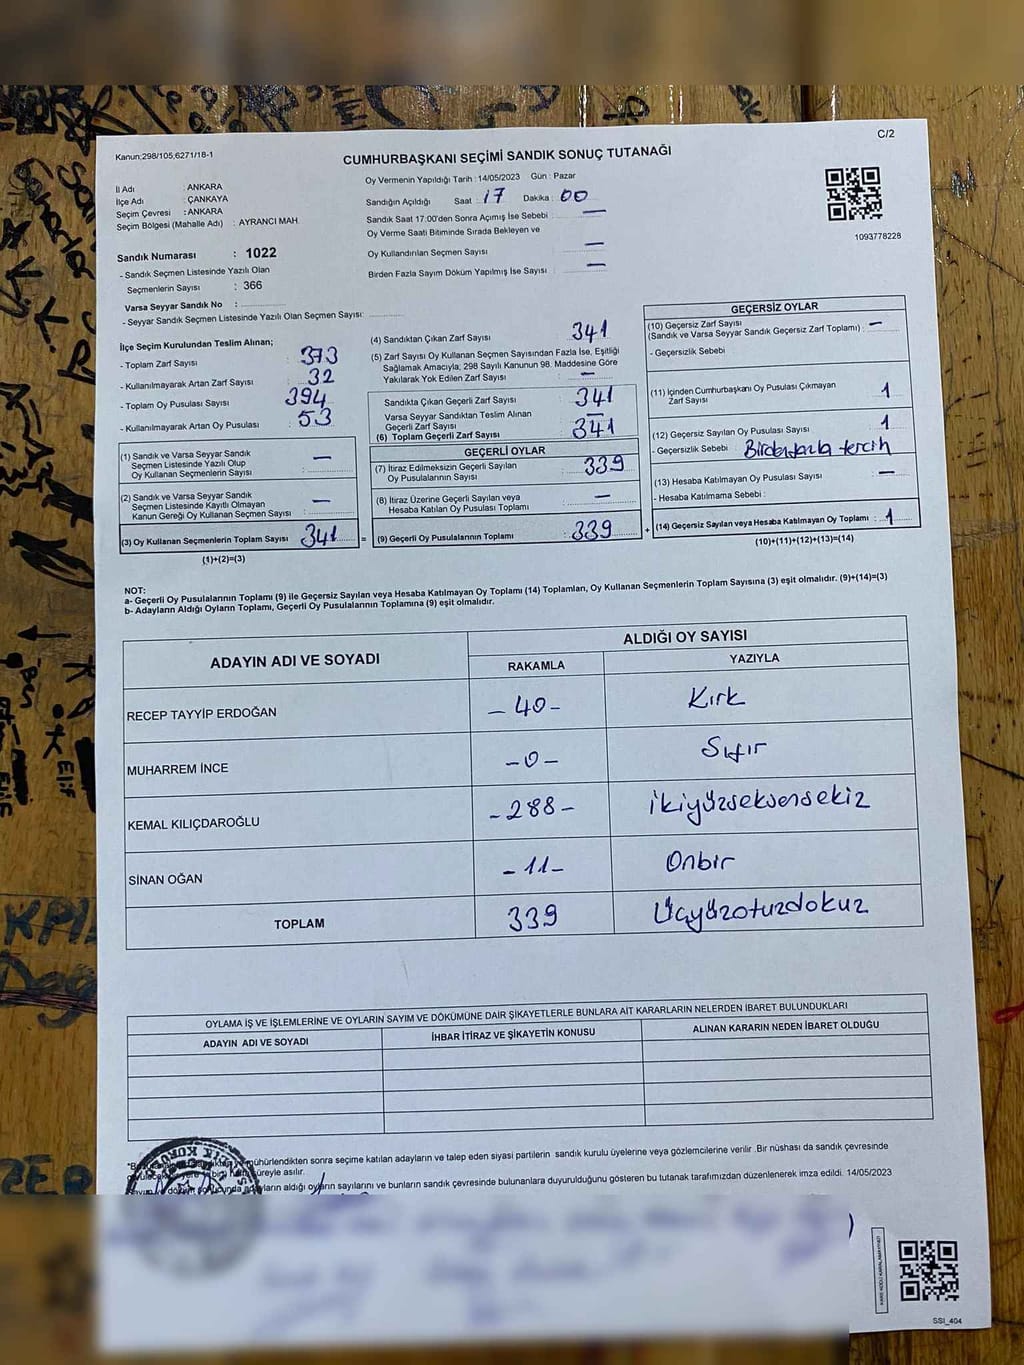 Kanun:298/105,6271/18-1
C/2
CUMHURBAŞKANI SEÇİMİ SANDIK SONUÇ TUTANAĞI
İl Adı : ANKARA
İlçe Adı : ÇANKAYA
Seçim Çevresi : ANKARA
Seçim Bölgesi (Mahalle Adı) : AYRANCI MAH.
Sandık Numarası : 1022
- Sandık Seçmen Listesinde Yazılı Olan
Seçmenlerin Sayısı : 366
Varsa Seyyar Sandık No :
- Seyyar Sandık Seçmen Listesinde Yazılı Olan Seçmen Sayısı:
Oy Vermenin Yapıldığı Tarih : 14/05/2023 Gün : Pazar
Sandığın Açıldığı Saat : 17 Dakika : 00
Sandık Saat 17:00'den Sonra Açımış İse Sebebi : —
Oy Verme Saati Bitiminde Sırada Bekleyen ve
Oy Kullandırılan Seçmen Sayısı : —
Birden Fazla Sayım Döküm Yapılmış İse Sayısı : —
1093778228
İlçe Seçim Kurulundan Teslim Alınan;
- Toplam Zarf Sayısı : 373
- Kullanılmayarak Artan Zarf Sayısı : 32
- Toplam Oy Pusulası Sayısı : 394
- Kullanılmayarak Artan Oy Pusulası : 53
(1) Sandık ve Varsa Seyyar Sandık
Seçmen Listesinde Yazılı Olup
Oy Kullanan Seçmenlerin Sayısı : —
(2) Sandık ve Varsa Seyyar Sandık
Seçmen Listesinde Kayıtlı Olmayan
Kanun Gereği Oy Kullanan Seçmen Sayısı : —
(3) Oy Kullanan Seçmenlerin Toplam Sayısı : 341
(1)+(2)=(3)
(4) Sandıktan Çıkan Zarf Sayısı : 341
(5) Zarf Sayısı Oy Kullanan Seçmen Sayısından Fazla İse, Eşitliği
Sağlamak Amacıyla; 298 Sayılı Kanunun 98. Maddesine Göre
Yakılarak Yok Edilen Zarf Sayısı : —
Sandıkta Çıkan Geçerli Zarf Sayısı : 341
Varsa Seyyar Sandıktan Teslim Alınan
Geçerli Zarf Sayısı : —
(6) Toplam Geçerli Zarf Sayısı : 341
GEÇERLİ OYLAR
(7) İtiraz Edilmeksizin Geçerli Sayılan
Oy Pusulalarının Sayısı : 339
(8) İtiraz Üzerine Geçerli Sayılan veya
Hesaba Katılan Oy Pusulası Toplamı : —
= (9) Geçerli Oy Pusulalarının Toplamı : 339
GEÇERSİZ OYLAR
(10) Geçersiz Zarf Sayısı
(Sandık ve Varsa Seyyar Sandık Geçersiz Zarf Toplamı) : —
- Geçersizlik Sebebi
(11) İçinden Cumhurbaşkanı Oy Pusulası Çıkmayan
Zarf Sayısı : 1
(12) Geçersiz Sayılan Oy Pusulası Sayısı : 1
- Geçersizlik Sebebi : Birden fazla tercih
(13) Hesaba Katılmayan Oy Pusulası Sayısı : —
- Hesaba Katılmama Sebebi :
+ (14) Geçersiz Sayılan veya Hesaba Katılmayan Oy Toplamı : 1
(10)+(11)+(12)+(13)=(14)
NOT:
a- Geçerli Oy Pusulalarının Toplamı (9) ile Geçersiz Sayılan veya Hesaba Katılmayan Oy Toplamı (14) Toplamları, Oy Kullanan Seçmenlerin Toplam Sayısına (3) eşit olmalıdır. (9)+(14)=(3)
b- Adayların Aldığı Oyların Toplamı, Geçerli Oy Pusulalarının Toplamına (9) eşit olmalıdır.
ADAYIN ADI VE SOYADI
ALDIĞI OY SAYISI
RAKAMLA YAZIYLA
RECEP TAYYİP ERDOĞAN - 40 - Kırk
MUHARREM İNCE - 0 - Sıfır
KEMAL KILIÇDAROĞLU - 288 - ikiyüzseksensekiz
SİNAN OĞAN - 11 - Onbir
TOPLAM 339 Üçyüzotuzdokuz
OYLAMA İŞ VE İŞLEMLERİNE VE OYLARIN SAYIM VE DÖKÜMÜNE DAİR ŞİKAYETLERLE BUNLARA AİT KARARLARIN NELERDEN İBARET BULUNDUKLARI
ADAYIN ADI VE SOYADI İHBAR İTİRAZ VE ŞİKAYETİN KONUSU ALINAN KARARIN NEDEN İBARET OLDUĞU
mühürlendikten sonra seçime katılan adayların ve talep eden siyasi partilerin sandık kurulu üyelerine veya gözlemcilerine verilir .Bir nüshası da sandık çevresinde
süreyle asılır.
aldığı oyların sayılarını ve bunların sandık çevresinde bulunanlara duyurulduğunu gösteren bu tutanak tarafımızdan düzenlenerek imza edildi. 14/05/2023
SSI_404